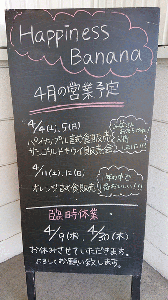 Happiness
Banana
4月の営業予定
4/4(土),5(日)
パイナップル試食販売
サンゴールドキウイ販売会
4/11(土),12(日)
オレンジ試食販売!!
臨時休業
4/9(木), 4/30(木)
お休みさせていただきます。
よろしくお願い致します。